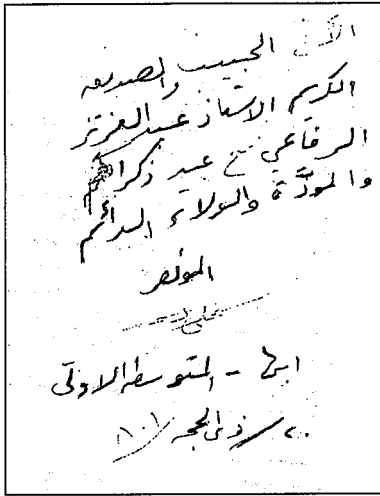 الأخ الحبيب والصديق
الكريم الاستاذ عبدالعزيز
الرفاعي مع عبير ذكراكم
والمودَّة والولاء الدائم
المؤلف
ابها - المتوسطه الاولى
٢٠/ذى الحجه